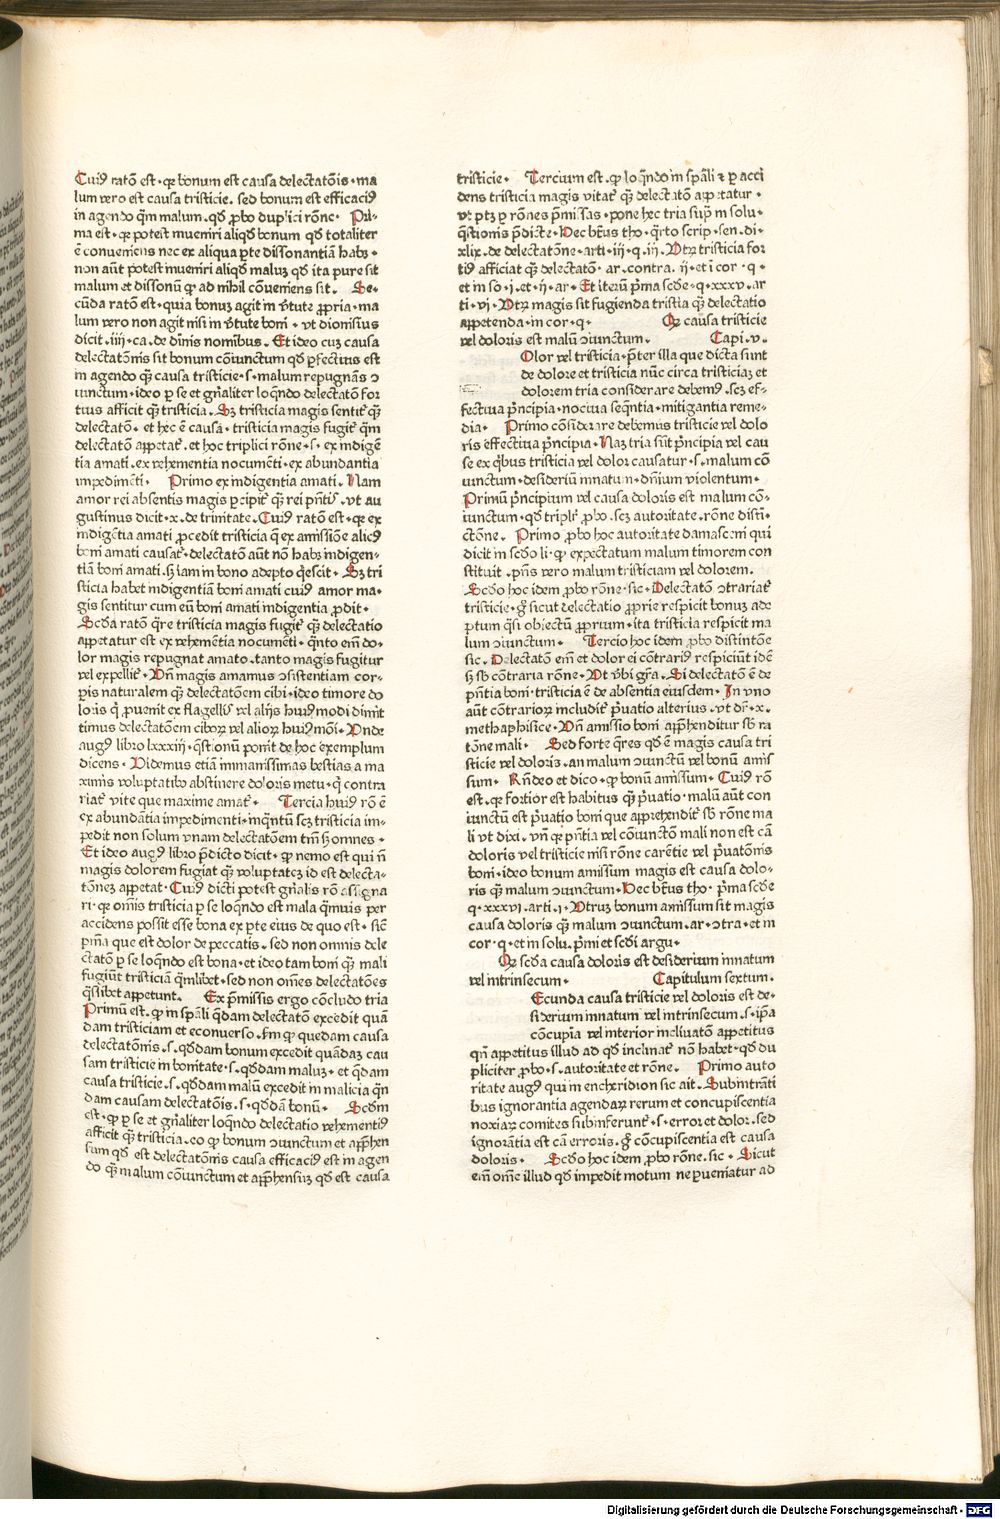 Cuiꝰ ratō est · qꝛ bonum est causa delectatōis · ma
lum vero est causa tristicie . sed bonum est efficaciꝰ
in agendo q̄m malum . qđ ꝓbo duplici rōne · Pri-
ma est · qꝛ potest inueniri aliqđ bonum qđ totaliter
ē conueniens nec ex aliqua ꝑte dissonantiā habꝫ ·
non aūt potest inueniri aliqđ maluꝫ qđ ita pure sit
malum et dissonū ꝙ ad nihil cōueniens sit . Se-
cūda ratō est · quia bonuꝫ agit in v̄tute ꝓpria · ma
lum vero non agit nisi in v̄tute boni · vt dionisius
dicit . iiii · ca . de diīnis nominibus . Et ideo cuꝫ causa
delectatōnis sit bonum cōiunctum qđ ꝑfectius est
in agendo qꝫ causa tristicie · s · malum repugnās ↄ
iunctum · ideo ꝑ se et gn̄aliter loqn̄do delectatō for
tius afficit qꝫ tristicia . Sꝫ tristicia magis sentit᷑ qꝫ
delectatō · et hec ē causa · tristicia magis fugit᷑ q̄m
delectatō appetat᷑ . et hoc triplici rōne · s · ex indigē
tia amati . ex vehementia nocumēti · ex abundantia
impedimēti · Primo ex indigentia amati . Nam
amor rei absentis magis ꝑcipit᷑ qꝫ rei pn̄tis . vt au
gustinus dicit · x . de trinitate . Cuiꝰ ratō est · qꝛ ex
indigētia amati ꝓcedit tristicia q̄ ex amissiōe alicꝰ
boni amati causat᷑ . delectatō aūt nō habꝫ indigen-
tiā boni amati . sꝫ iam in bono adepto q̇escit · Sꝫ tri
sticia habet indigentiā boni amati cuiꝰ amor ma-
gis sentitur cum eiꝰ boni amati indigentia ꝓdit ·
Scđa ratō q̄re tristicia magis fugit᷑ qꝫ delectatio
appetatur est ex vehemētia nocumēti · q̄nto em̄ do-
lor magis repugnat amato · tanto magis fugitur
vel expellit᷑ . Vn̄ magis amamus ↄsistentiam cor-
pis naturalem qꝫ delectatōem cibi · ideo timore do
loris q̇ ꝓuenit ex flagellis vel alijs huiꝰmodi dimit
timus delectatōem ciboꝝ vel alioꝝ huiꝰmōi . Vnde
augꝰ libro lxxxiij · q̄stionū ponit de hoc exemplum
dicens . Videmus etiā immanissimas bestias a ma
ximis voluptatibꝰ abstinere doloris metu · q̇ contra
riat᷑ vite que maxime amat᷑ · Tercia huiꝰ rō ē
ex abundātia impedimenti · inq̄ntū scꝫ tristicia im-
pedit non solum vnam delectatōem tm̄ sꝫ omnes ·
Et ideo augꝰ libro p̄dicto dicit · ꝙ nemo est qui nō
magis dolorem fugiat qꝫ voluptateꝫ id est delecta-
tōneꝫ appetat · Cuiꝰ dicti potest gn̄alis rō assigna
ri · qꝛ om̄is tristicia ꝑ se loqn̄do est mala q̄muis per
accidens possit esse bona ex ꝑte eius de quo est · sic̄
pn̄ia que est dolor de peccatis . sed non omnis dele
ctatō ꝑ se loqn̄do est bona · et ideo tam boni qꝫ mali
fugiūt tristiciā q̄mlibet · sed non om̄es delectatōes
q̄slibet appetunt . Ex p̄missis ergo cōcludo tria
Primū est . ꝙ in sp̄ali q̄dam delectatō excedit quā
dam tristiciam et econuerso . fm̄ ꝙ quedam causa
delectatōnis . s . qđdam bonum excedit quādaꝫ cau
sam tristicie in bonitate · s · qđdam maluꝫ · et q̄dam
causa tristicie . s . qđdam malū excedit in malicia q̄n
dam causam delectatōis . s · qđdā bonū · Scđm
est · ꝙ ꝑ se et gn̄aliter loqn̄do delectatio vehementiꝰ
afficit qꝫ tristicia . eo ꝙ bonum ↄiunctum et appn̄hen
sum qđ est delectatōnis causa efficaciꝰ est in agen
do qꝫ malum cōiunctum et appn̄hensuꝫ qđ est causa
tristicie · Tercium est . ꝙ loqn̄do in sp̄ali ⁊ ꝑ acci
dens tristicia magis vitat᷑ qꝫ delectatō appetatur ·
vt ptꝫ ꝑ rōnes p̄missas · pone hec tria sup̄ in solu-
q̄stionis p̄dicte · Hec bt̄us tho · q̄rto scrip · sen . di-
xlix . de delectatōne · arti · iij · q . iij . Vtꝝ tristicia for
tiꝰ afficiat qꝫ delectatō · ar . contra . ij · et i cor · q ·
et in so · i . et · ij · ar · Et iterū p̄ma scđe · q . xxxv . ar
ti · vi . Vtꝝ magis sit fugienda tristia qꝫ delectatio
appetenda · in cor · q · Qꝛ causa tristicie
vel doloris est malū ↄiunctum . Capi · v .
Olor vel tristicia · p̄ter illa que dicta sunt
de dolore et tristicia nūc circa tristiciaꝫ et
dolorem tria considerare debemꝰ . scꝫ ef-
fectiua p̄ncipia · nociua seqn̄tia · mitigantia reme-
dia · Primo cōsiderare debemus tristicie vel dolo
ris effectiua p̄ncipia · Naꝫ tria sūt p̄ncipia vel cau
se ex qꝰbus tristicia vel dolor causatur · s . malum cō
iunctum · desideriū innatum · dn̄ium violentum ·
Primū p̄ncipium vel causa doloris est malum cō-
iunctum · qđ triplr̄ ꝓbo . scꝫ autoritate . rōne disti-
ctōne . Primo ꝓbo hoc autoritate damasceni qui
dicit in scđo li · ꝙ expectatum malum timorem con
stituit . pn̄s vero malum tristiciam vel dolorem .
Scđo hoc idem ꝓbo rōne · sic · Delectatō ↄtrariat᷑
tristicie · gͦ sicut delectatio ꝓprie respicit bonuꝫ ade
ptum q̄si obiectū ꝓprium · ita tristicia respicit ma
lum ↄiunctum · Tercio hoc idem ꝓbo distintōe
sic . Delectatō em̄ et dolor ei cōtrariꝰ respiciūt idē
sꝫ sb̄ contraria rōne · Vt v̄bi gr̄a . Si delectatō ē de
pn̄tia boni · tristicia ē de absentia eiusdem · In vno
aūt contrarioꝝ includit᷑ p̄uatio alterius . vt dr̄ · x .
methaphisice · Vn̄ amissio boni appn̄henditur sb̄ ra
tōne mali · Sed forte q̄res qđ ē magis causa tri
sticie vel doloris . an malum ↄiunctū vel bonū amis
sum · Rn̄deo et dico · ꝙ bonū amissum · Cuiꝰ rō
est . qꝛ fortior est habitus qꝫ p̄uatio · malū aūt con
iunctū est p̄uatio boni que apprehendit᷑ sb̄ rōne ma
li vt dixi . vn̄ qꝛ pn̄tia vel cōiunctō mali non est cā
doloris vel tristicie nisi rōne carētie vel p̄uatōnis
boni · ideo bonum amissum magis est causa dolo-
ris qꝫ malum ↄiunctum · Hec bt̄us tho · p̄ma scđe
q · xxxvi . arti . i · Vtruꝫ bonum amissum sit magis
causa doloris qꝫ malum ↄiunctum . ar · ↄtra · et in
cor · q · et in solu . p̄mi et scđi argu ·
Qꝛ scđa causa doloris est desiderium innatum
vel intrinsecum · Capitulum sextum .
Ecunda causa tristicie vel doloris est de-
siderium innatum vel intrinsecum · s · ip̄a
cōcupīa vel interior inclinatō appetitus
qn̄ appetitus illud ad qđ inclinat᷑ nō habet · qđ du
pliciter ꝓbo · s . autoritate et rōne . Primo auto
ritate augꝰ qui in encheridion sic ait . Subintrāti
bus ignorantia agendaꝝ rerum et concupiscentia
noxiaꝝ comites subinferunt᷑ · s · error et dolor . sed
ignorātia est cā erroris . gͦ cōcupiscentia est causa
doloris · Scđo hoc idem ꝓbo rōne . sic · Sicut
em̄ om̄e illud qđ impedit motum ne ꝑueniatur ad
Digitalisierung gefördert durch die Deutsche Forschungsgemeinschaft - DFG